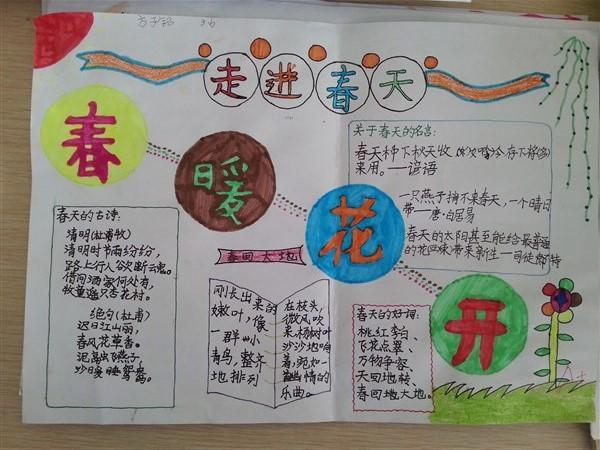 3.6
走进春天
春
暖
花
开
关于春天的名言:
春天种下秋天收
来用。——谚语
一只燕子捎不来春天,一个晴日
带——唐·白居易
春天的太阳甚至能给最普通
的花
带来新生——司徒
特
春天的古诗:
清明(杜牧)
清明时节雨纷纷,
路上行人欲断云鬼。
借问酒家何处有,
牧童遥只杏花村。
绝句(杜甫)
迟日江山丽,
春风花草香。
泥
飞燕子,
沙日爰睡鸳鸯。
春回大地
刚长出来的
嫩叶,像
一群小
青鸟,整齐
地排列
在枝头,
微风吹
来,杨树叶
沙沙地响
着,宛如一
情的
乐曲。
春天的好词:
桃红李白、
飞花点翠、
万物争容、
天回地转、
春回地大地。
A+